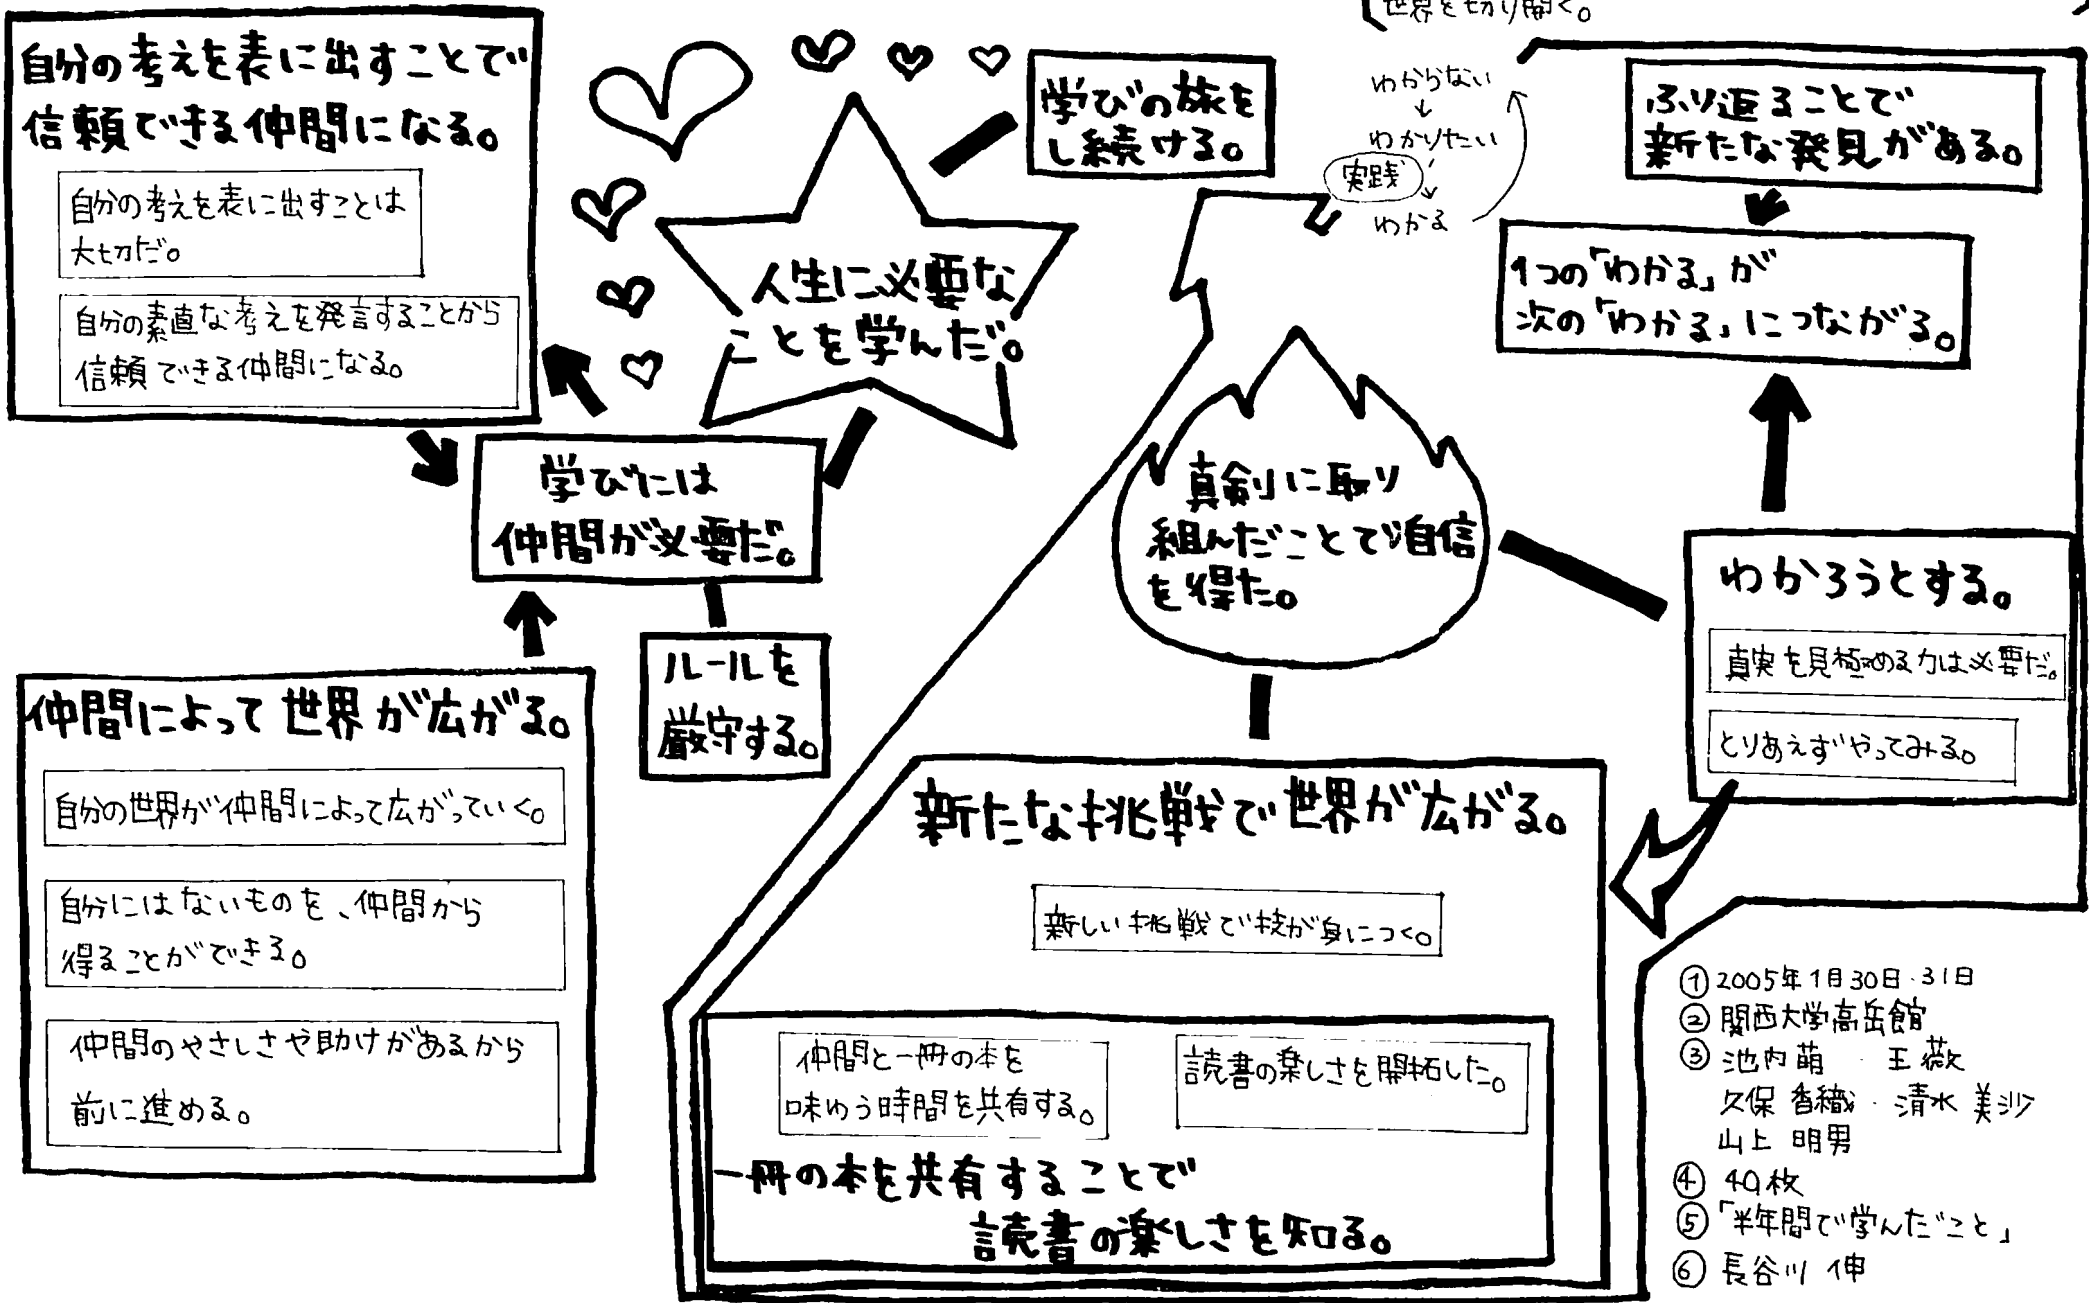 世界を切り開く。
自分の考えを表に出すことで
信頼できる仲間になる。
自分の考えを表に出すことは
大切だ。
自分の素直な考えを発言することから
信頼できる仲間になる。
学びの旅を
し続ける。
人生に必要な
ことを学んだ。
学びには
仲間が必要だ。
ルールを
厳守する。
仲間によって世界が広がる。
自分の世界が仲間によって広がっていく。
自分にはないものを、仲間から
得ることができる。
仲間のやさしさや助けがあるから
前に進める。
わからない
↓
わかりたい
実践
↓
わかる
ふり返ることで
新たな発見がある。
1つの「わかる」が
次の「わかる」につながる。
真剣に取り
組んだことで自信
を得た。
わかろうとする。
真実を見極める力は必要だ。
とりあえずやってみる。
新たな挑戦で世界が広がる。
新しい挑戦で技が身につく。
仲間と一冊の本を
味わう時間を共有する。
読書の楽しさを開拓した。
一冊の本を共有することで
読書の楽しさを知る。
① 2005年1月30日・31日
② 関西大学高岳館
③ 池内萌・王薇
久保 香織・清水 美沙
山上 明男
④ 40枚
⑤「半年間で学んだこと」
⑥ 長谷川 伸